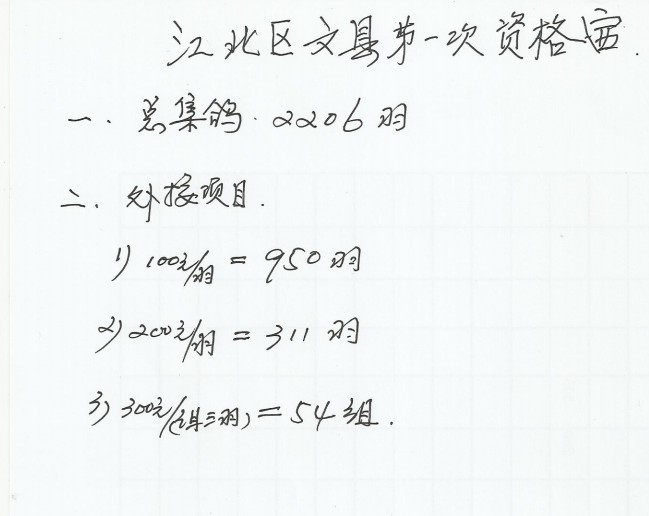 江北区文县第一次资格赛.
一. 总集鸽. 2206羽
二. 外接项目.
1) 100元/羽 = 950羽
2) 200元/羽 = 311羽
3) 300元/(组三羽) = 54组.